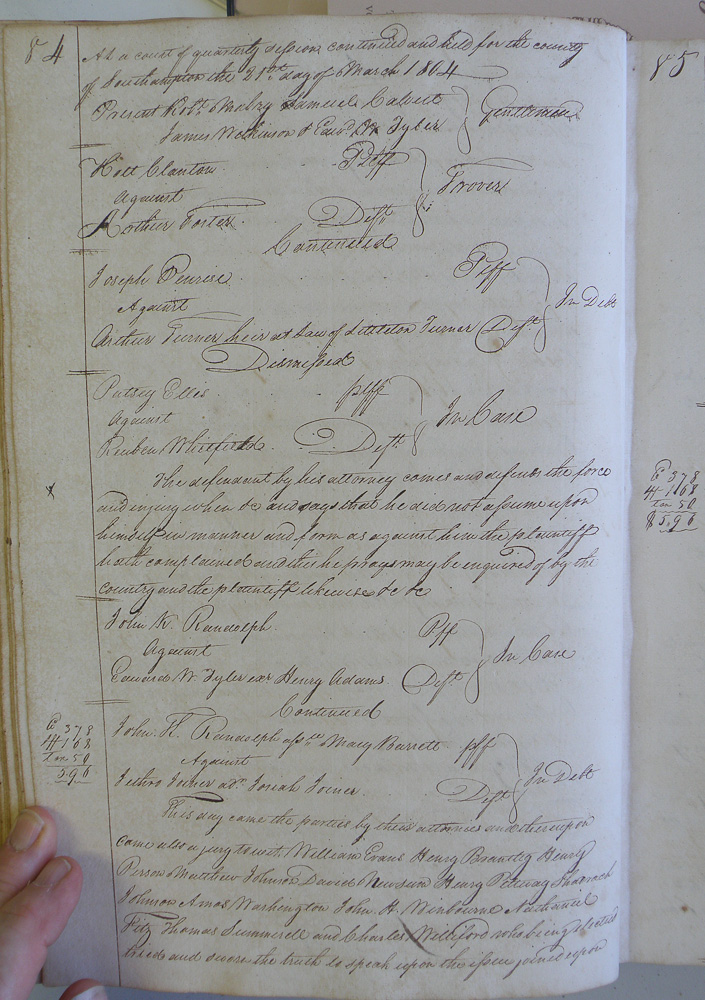 84
At a court of quarterly sessions continued and held for the county
of Southampton the 21st day of March 1804
Present Robt. Mabry Samuel Calvert
James Wilkinson & Edwd. W. Tyler
Gentlemen
Holl Clanton Plff
Against
Trover
Arthur Foster Deft.
Continued
Joseph Denrise Plff
Against
In Debt
Arthur Turner heir at Law of Littleton Turner Deft.
Dismissed
Patsey Ellis plff
Against
In Case
Reuben Whitfield Deft.
The defendant by his attorney comes and defends the force
and injury when &c and says that he did not assume upon
himself in manner and form as against him the plaintiff
hath complained and this he prays may be enquired of by the
country and the plaintiff likewise &c &c
John K. Randolph Plff
Against
In Case
Edward W. Tyler exr Henry Adams Deft.
Continued
C 378
4 - 168
Tax 50
596
John K. Randolph assee. Macy Barrett plff
Against
In Debt
Jethro Joiner adr. Josiah Joiner Deft
This day came the parties by their attornies and thereupon
came also a jury to wit, William Evans Henry Brantley Henry
Person Matthew Johnson David Newsum Henry Pettway Shadrach
Johnson Amos Washington John H. Winbourne Nathaniel
Fitz Thomas Summerell and Charles Williford who being elected
tried and sworn the truth to speak upon the issue joined upon
85
C 378
4 - 168
Tax 50
$5.96